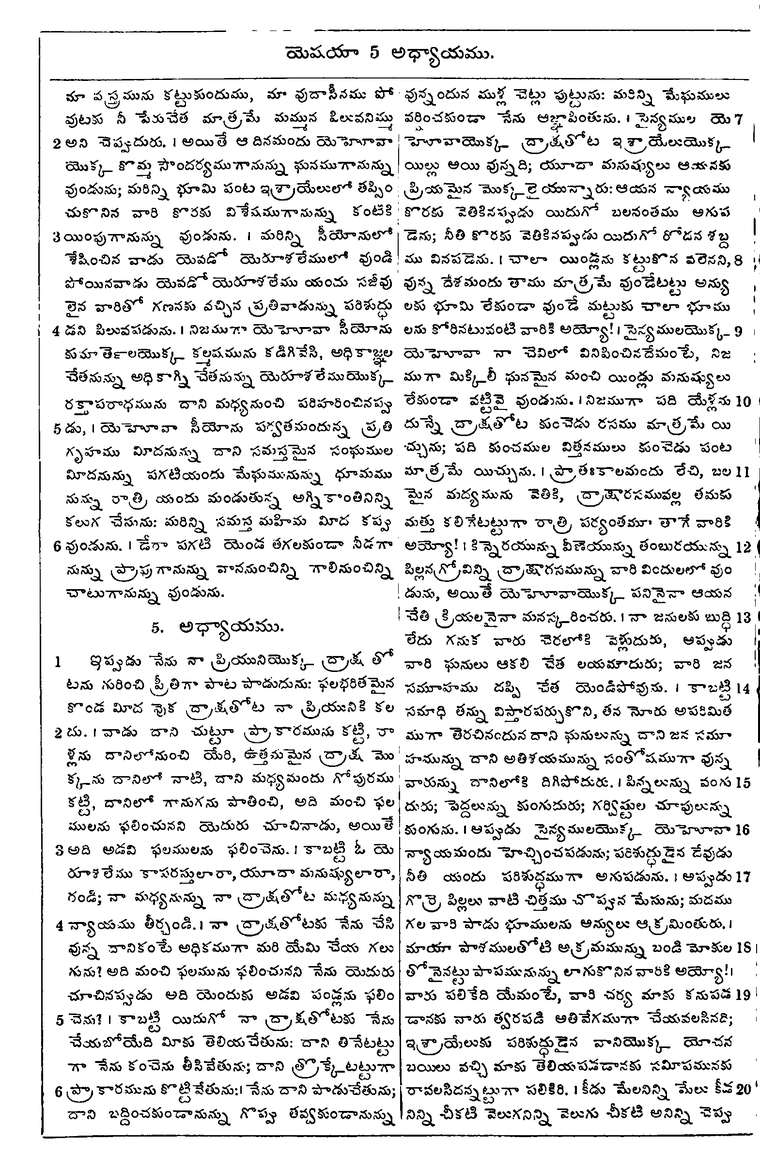 యెషయా 5 అధ్యాయము.
మా వస్త్రమును కట్టుకుందుము, మా వుదాసీనము పో
వుటకు నీ పేరుచేత మాత్రమే మమ్మున పిలువనిమ్ము
2 అని చెప్పుదురు. । అయితే ఆ దినమందు యెహోవా
యొక్క కొమ్మ సౌందర్యముగానున్ను ఘనముగానున్ను
వుండును; మరిన్ని భూమి పంట ఇశ్రాయేలులో తప్పిం
చుకొనిన వారి కొరకు విశేషముగానున్ను కంటికి
3 యింపుగానున్ను వుండును. । మరిన్ని సీయోనులో
శేషించిన వాడు యెవడో యెరూశలేములో వుండి
పోయినవాడు యెవడో యెరూశలేము యందు సజీవు
లైన వారితో గణనకు వచ్చిన ప్రతివాడున్ను పరిశుద్ధు
4 డని పిలువపడును. । నిజముగా యెహోవా సీయోను
కుమార్తెలయొక్క కల్మషమును కడిగివేసి, అధికాజ్ఞల
చేతనున్ను అధికాగ్ని చేతనున్ను యెరూశలేముయొక్క
రక్తాపరాధమును దాని మధ్యనుంచి పరిహరించినప్పు
5 డు, । యెహోవా సీయోను పర్వతమందున్న ప్రతి
గృహము మీదనున్ను దాని సమస్తమైన సంఘముల
మీదనున్ను పగటియందు మేఘమునున్ను ధూమము
నున్ను రాత్రి యందు మండుతున్న అగ్నికాంతినిన్ని
కలుగ చేసును: మరిన్ని సమస్త మహిమ మీద కప్పు
6 వుండును. । డేరా పగటి యెండ తగలకుండా నీడగా
నున్ను ప్రాపుగానున్ను వాననుంచిన్ని గాలినుంచిన్ని
చాటుగానున్ను వుండును.
5. అధ్యాయము.
1 ఇప్పుడు నేను నా ప్రియునియొక్క ద్రాక్ష తో
టను గురించి ప్రీతిగా పాట పాడుదును: ఫలభరితమైన
కొండ మీద వొక ద్రాక్షతోట నా ప్రియునికి కల
2 దు. । వాడు దాని చుట్టూ ప్రాకారమును కట్టి, రా
ళ్లను దానిలోనుంచి యేరి, ఉత్తమమైన ద్రాక్ష మొ
క్కను దానిలో నాటి, దాని మధ్యమందు గోపురము
కట్టి, దానిలో గానుగను పాతించి, అది మంచి ఫల
ములను ఫలించునని యెదురు చూచినాడు, అయితే
3 అది అడవి ఫలములను ఫలించెను. । కాబట్టి ఓ యె
రూశలేము కాపరస్తులారా, యూదా మనుష్యులారా,
రండి; నా మధ్యనున్ను నా ద్రాక్షతోట మధ్యనున్ను
4 న్యాయము తీర్చండి. । నా ద్రాక్షతోటకు నేను చేసి
వున్న దానికంటే అధికముగా మరి యేమి చేయ గలు
గును? అది మంచి ఫలమును ఫలించునని నేను యెదురు
చూచినప్పుడు అది యెందుకు అడవి పండ్లను ఫలిం
5 చెను? । కాబట్టి యిదుగో నా ద్రాక్షతోటకు నేను
చేయబోయేది మీకు తెలియచేతును: దాని తినేటట్టు
గా నేను కంచెను తీసివేతును; దాని త్రొక్కేటట్టుగా
6 ప్రాకారమును కొట్టివేతును:। నేను దాని పాడుచేతును;
దాని బద్దించకుండానున్ను గొప్పు తవ్వకుండానున్ను
వున్నందున ముళ్ల చెట్లు పుట్టును: మరిన్ని మేఘములు
వర్షించకుండా నేను ఆజ్ఞాపింతును. । సైన్యముల యె 7
హోవాయొక్క ద్రాక్షతోట ఇశ్రాయేలుయొక్క
యిల్లు అయి వున్నది; యూదా మనుష్యులు ఆయనకు
ప్రియమైన మొక్కలై యున్నారు: ఆయన న్యాయము
కొరకు వెతికినప్పుడు యిదుగో బలవంతము అగుప
డెను; నీతి కొరకు వెతికినప్పుడు యిదుగో రోదన శబ్ద
ము వినపడెను. । చాలా యిండ్లను కట్టుకొన వలెనని, 8
వున్న దేశమందు తాము మాత్రమే వుండేటట్టు అన్యు
లకు భూమి లేకుండా వుండే మట్టుకు చాలా భూము
లను కోరినటువంటి వారికి అయ్యో!। సైన్యములయొక్క 9
యెహోవా నా చెవిలో వినిపించినదేమంటే, నిజ
ముగా మిక్కిలీ ఘనమైన మంచి యిండ్లు మనుష్యులు
లేకుండా వట్టివై వుండును. ।నిజముగా పది యేళ్లను 10
దున్నే ద్రాక్షతోట కుంచెడు రసము మాత్రమే యి
చ్చును; పది కుంచముల విత్తనములు కుంచెడు పంట
మాత్రమే యిచ్చును. । ప్రాతఃకాలమందు లేచి, బల 11
మైన మద్యమును వెతికి, ద్రాక్షారసమువల్ల తమకు
మత్తు కలిగేటట్టుగా రాత్రి పర్యంతమూ తాగే వారికి
అయ్యో!। కిన్నెరయున్ను వీణెయున్ను తంబురయున్ను 12
పిల్లనగ్రోవిన్ని ద్రాక్షారసమున్ను వారి విందులలో వుం
డును, అయితే యెహోవాయొక్క పనినైనా ఆయన
చేతి క్రియలనైనా మనస్కరించరు. । నా జనులకు బుద్ధి 13
లేదు గనుక వారు చెరలోకి వెళ్లుదురు, అప్పుడు
వారి ఘనులు ఆకలి చేత లయమౌదురు; వారి జన
సమూహము దప్పి చేత యెండిపోవును. । కాబట్టి 14
సమాధి తన్ను విస్తారపర్చుకొని, తన నోరు అపరిమిత
ముగా తెరచినందున దాని ఘనులున్ను దాని జన సమూ
హమున్ను దాని అతిశయమున్ను సంతోషముగా వున్న
వారున్ను దానిలోకి దిగిపోదురు. । పిన్నలున్ను వంగు 15
దురు; పెద్దలున్ను కుంగుదురు; గర్విష్టుల చూపులున్ను
కుంగును. । అప్పుడు సైన్యములయొక్క యెహోవా 16
న్యాయమందు హెచ్చించపడును; పరిశుద్ధుడైన దేవుడు
నీతి యందు పరిశుద్ధముగా అగుపడును. । అప్పుడు 17
గొర్రె పిల్లలు వాటి చిత్తము చొప్పున మేసును; మదము
గల వారి పాడు భూములను అన్యులు ఆక్రమింతురు. ।
మాయా పాశములతోటి అక్రమమున్ను బండి మోకుల 18
తోనైనట్టు పాపమునున్ను లాగుకొనిన వారికి అయ్యో!।
వారు పలికేది యేమంటే, వారి చర్య మాకు కనుపడ 19
డానకు వారు త్వరపడి అతివేగముగా చేయవలసినది;
ఇశ్రాయేలుకు పరిశుద్ధుడైన వానియొక్క యోచన
బయిలు వచ్చి మాకు తెలియపడడానకు సమీపమునకు
రావలసిదన్నట్టుగా పలికిరి. । కీడు మేలనిన్ని మేలు కీడ 20
నిన్ని చీకటి వెలుగనిన్ని వెలుగు చీకటి అనిన్ని చెప్పు